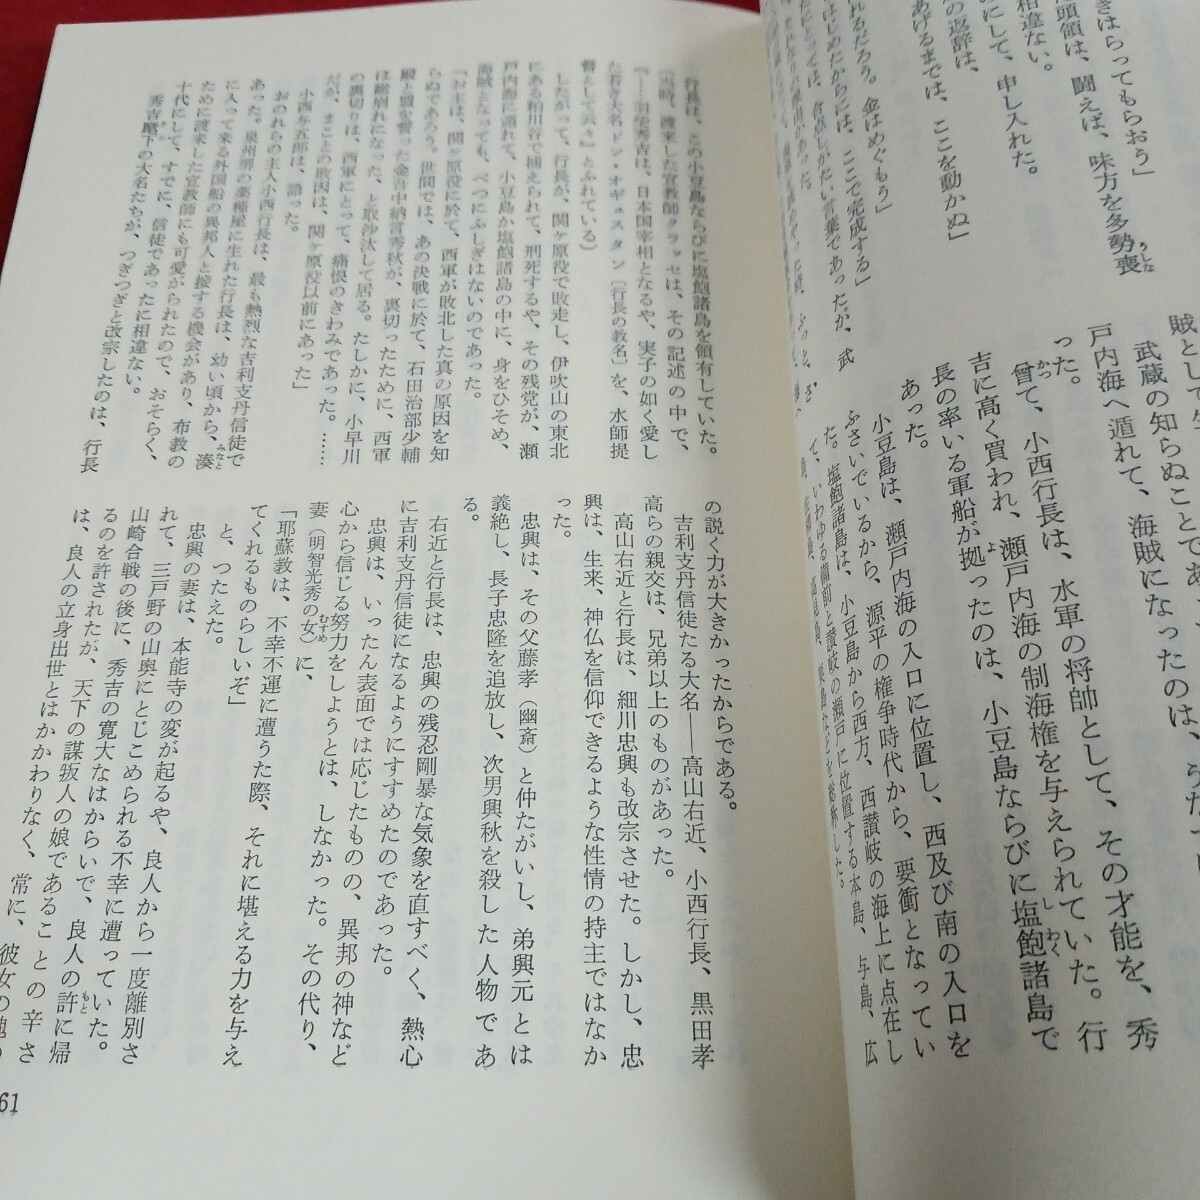 きはらってもらおう」
頭領は、闘えば、味方を多勢喪
相違ない。
のにして、申し入れた。
の返辞は、
あげるまでは、ここを動かぬ」
れるだろう。金はめぐもう」
はじめたからには、ここで完成する」
たにとっては、合点しかたい言葉であったが、武
賊として生
武蔵の知らぬことであ
戸内海へ遁れて、海賊になったのは、
った。
曾て、小西行長は、水軍の将帥として、その才能を、秀
吉に高く買われ、瀬戸内海の制海権を与えられていた。行
長の率いる軍船が拠ったのは、小豆島ならびに塩飽諸島で
あった。
小豆島は、瀬戸内海の入口に位置し、西及び南の入口を
ふさいでいるから、源平の権争時代から、要衝となってい
た。塩飽諸島は、小豆島から西方、西讃岐の海上に点在し
て、いわゆる備前と讃岐の瀬戸に位置する本島、与島、広
行長は、この小豆島ならびに塩飽諸島を領有していた。
（当時、渡来した宣教師クラッセは、その記述の中で、
『――羽柴秀吉は、日本国宰相となるや、実子の如く愛し
た若き大名ドン・オギュスタン［行長の教名］を、水師提
督として云々』とふれている）
したがって、行長が、関ヶ原役で敗走し、伊吹山の東北
にある粕川谷で捕えられて、刑死するや、その残党が、瀬
戸内海に遁れて、小豆島か塩飽諸島の中に、身をひそめ、
海賊となっても、べつにふしぎはないのであった。
「お主は、関ヶ原役に於て、西軍が敗北した真の原因を知
らぬであろう。世間では、あの決戦に於て、石田治部少輔
殿と盟を誓った金吾中納言秀秋が、裏切ったために、西軍
は総崩れになった、と取沙汰して居る。たしかに、小早川
の裏切りは、西軍にとって、痛恨のきわみであった。……
だが、まことの敗因は、関ヶ原役以前にあった」
小西与五郎は、語った。
おのれらの主人小西行長は、最も熱烈な吉利支丹信徒で
あった。泉州堺の薬種屋に生れた行長は、幼い頃から、湊
に入って来る外国船の異邦人と接する機会があり、布教の
ために渡来した宣教師にも可愛がられたので、おそらく、
十代にして、すでに、信徒であったに相違ない。
秀吉麾下の大名たちが、つぎつぎと改宗したのは、行長
の説く力が大きかったからである。
吉利支丹信徒たる大名――高山右近、小西行長、黒田孝
高らの親交は、兄弟以上のものがあった。
高山右近と行長は、細川忠興も改宗させた。しかし、忠
興は、生来、神仏を信仰できるような性情の持主ではなか
った。
忠興は、その父藤孝（幽斎）と仲たがいし、弟興元とは
義絶し、長子忠隆を追放し、次男興秋を殺した人物であ
る。
右近と行長は、忠興の残忍剛暴な気象を直すべく、熱心
に吉利支丹信徒になるようにすすめたのであった。
忠興は、いったん表面では応じたものの、異邦の神など
心から信じる努力をしようとは、しなかった。その代り、
妻（明智光秀の女）に、
「耶蘇教は、不幸不運に遭うた際、それに堪える力を与え
てくれるものらしいぞ」
と、つたえた。
忠興の妻は、本能寺の変が起るや、良人から一度離別さ
れて、三戸野の山奥にとじこめられる不幸に遭っていた。
山崎合戦の後に、秀吉の寛大なはからいで、良人の許に帰
るのを許されたが、天下の謀叛人の娘であることの辛さ
は、良人の立身出世とはかかわりなく、常に、彼女の魂
61